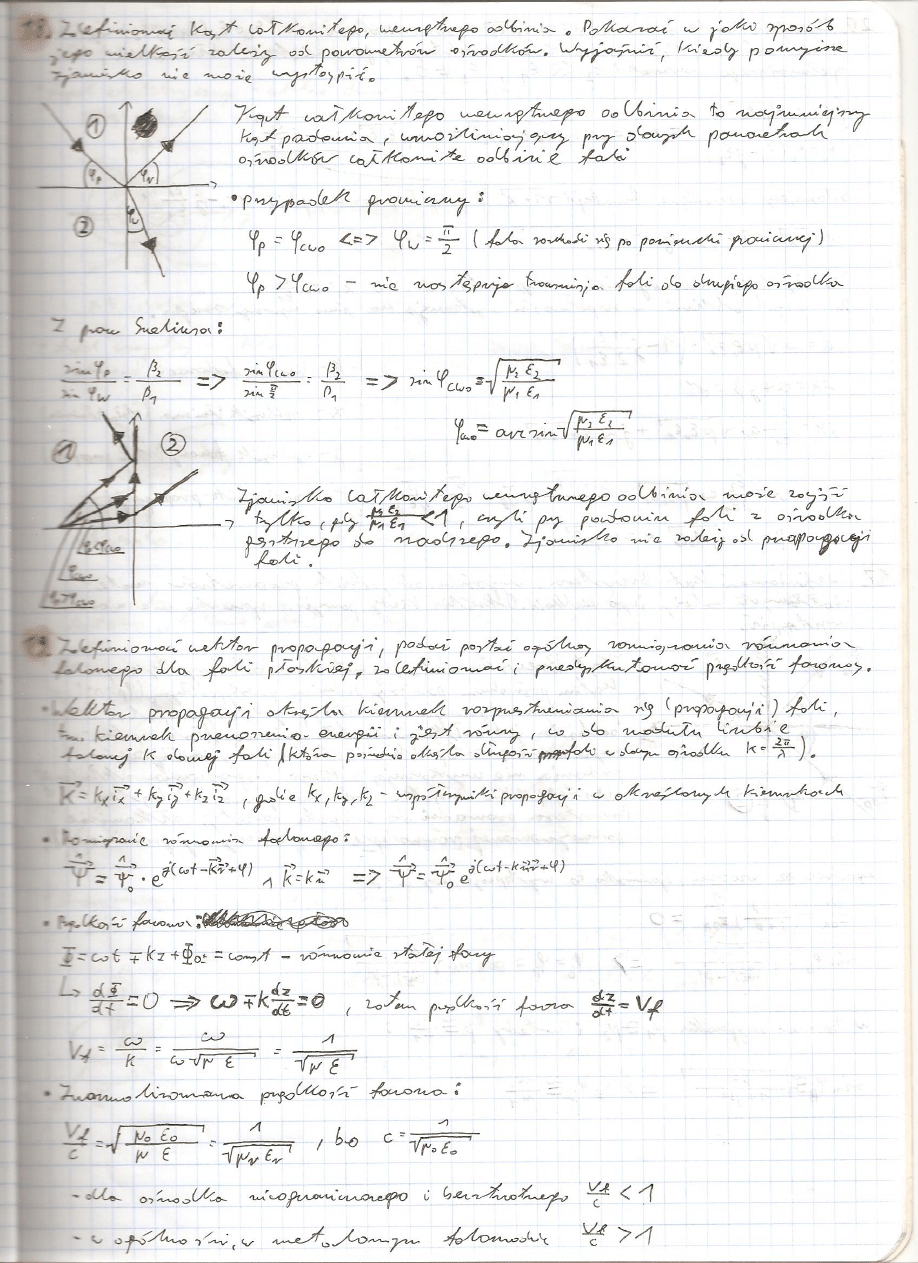 18. Zdefiniować kąt całkowitego, wewnętrznego odbicia. Pokazać w jaki sposób
jego wielkość zależy od parametrów ośrodków. Wyjaśnić, kiedy powyższe
zjawisko nie może wystąpić.
1
2
φp
φr
φw
Kąt całkowitego wewnętrznego odbicia to najmniejszy
kąt padania, umożliwiający przy danych parametrach
ośrodków całkowite odbicie fali
• przypadek graniczny:
φp = φcwo <=> φw = π/2 (fala rozchodzi się po powierzchni granicznej)
φp > φcwo - nie następuje transmisja fali do drugiego ośrodka
Z praw Snelliusa:
sin φp / sin φw = β2 / β1 => sin φcwo / sin π/2 = β2 / β1 => sin φcwo = √(μ2 ε2 / μ1 ε1)
φcwo = arcsin √(μ2 ε2 / μ1 ε1)
1
2
φ<φcwo
φcwo
φ>φcwo
Zjawisko całkowitego wewnętrznego odbicia może zajść
tylko, gdy μ2 ε2 / μ1 ε1 < 1, czyli przy padaniu fali z ośrodka
gęstszego do rzadszego. Zjawisko nie zależy od propagacji
fali.
19. Zdefiniować wektor propagacji, podać postać ogólną rozwiązania równania
falowego dla fali płaskiej, zdefiniować i przedyskutować prędkość fazową.
• Wektor propagacji określa kierunek rozprzestrzeniania się (propagacji) fali,
kierunek przenoszenia energii i jest równy, co do modułu liczbie
falowej k danej fali (która pośrednio określa długość fali w danym ośrodku k = 2π/λ).
k⃗ = kx i⃗x + ky i⃗y + kz i⃗z, gdzie kx, ky, kz - współczynniki propagacji w określonych kierunkach
• Rozwiązanie równania falowego:
Ψ̂⃗ = Ψ̂⃗0 · e^j(ωt-k⃗r⃗+φ) ∧ k⃗ = kn⃗ => Ψ̂⃗ = Ψ̂⃗0 e^j(ωt-kn⃗r⃗+φ)
• Prędkość fazowa:
Φ = ωt ∓ kz + Φ0± = const - równanie stałej fazy
↳ dΦ/dt = 0 => ω ∓ k dz/dt = 0, zatem prędkość fazowa dz/dt = Vf
Vf = ω/k = ω / ω√(μ ε) = 1 / √(μ ε)
• Znormalizowana prędkość fazowa:
Vf/c = √(μ0 ε0 / μ ε) = 1 / √(μr εr), bo c = 1 / √(μ0 ε0)
- dla ośrodka nieograniczonego i bezstratnego Vf/c < 1
- w ogólności, w metalowym falowodzie Vf/c > 1